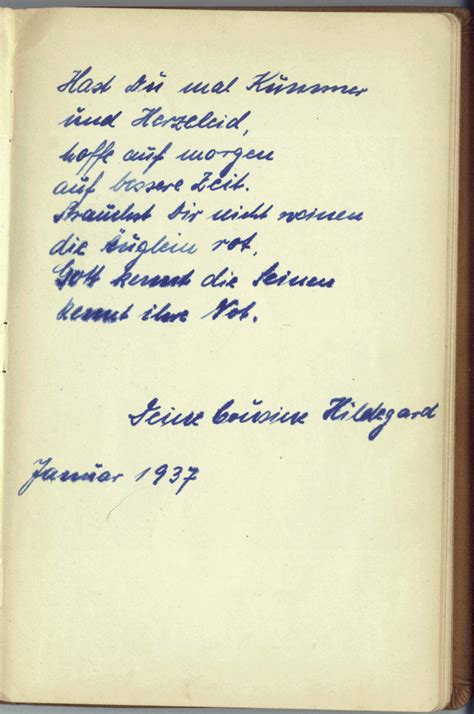 Hast Du mal Kummer
und Herzeleid,
hoffe auf morgen
auf bessere Zeit.
Brauchst Dir nicht weinen
die Äuglein rot,
Gott kennt die Seinen
kennt ihre Not.
Deine Cousine Hildegard
Januar 1937